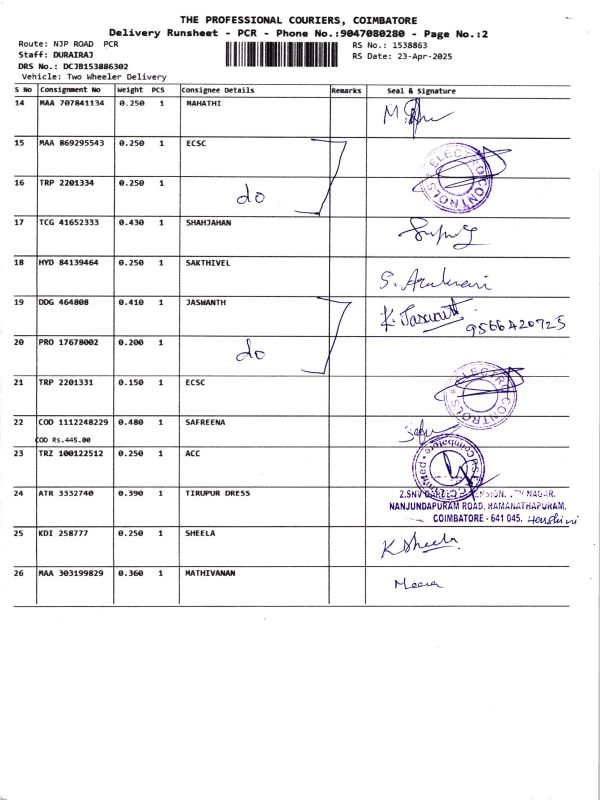 THE PROFESSIONAL COURIERS, COIMBATORE
Delivery Runsheet - PCR - Phone No.:9047080280 - Page No.:2
Route: NJP ROAD PCR
RS No.: 1538863
Staff: DURAIRAJ
RS Date: 23-Apr-2025
DRS No.: DCJB153886302
Vehicle: Two Wheeler Delivery
S No Consignment No Weight PCS Consignee Details Remarks Seal & Signature
14 MAA 707841134 0.250 1 MAHATHI
15 MAA 869295543 0.250 1 ECSC
ELECTRO CONTROLS
16 TRP 2201334 0.250 1 do
17 TCG 41652333 0.430 1 SHAHJAHAN
18 HYD 84139464 0.250 1 SAKTHIVEL
19 DDG 464808 0.410 1 JASWANTH K. Jaswanth 9566420725
20 PRO 17678002 0.200 1 do
21 TRP 2201331 0.150 1 ECSC
ELECTRO CONTROLS
22 COD 1112248229 0.480 1 SAFREENA
COD Rs.445.00
23 TRZ 100122512 0.250 1 ACC
Coimbatore
24 ATR 3332740 0.390 1 TIRUPUR DRESS
2,SNV NAGAR,
NANJUNDAPURAM ROAD, RAMANATHAPURAM,
COIMBATORE - 641 045.
25 KDI 258777 0.250 1 SHEELA K Sheela
26 MAA 303199829 0.360 1 MATHIVANAN Meera